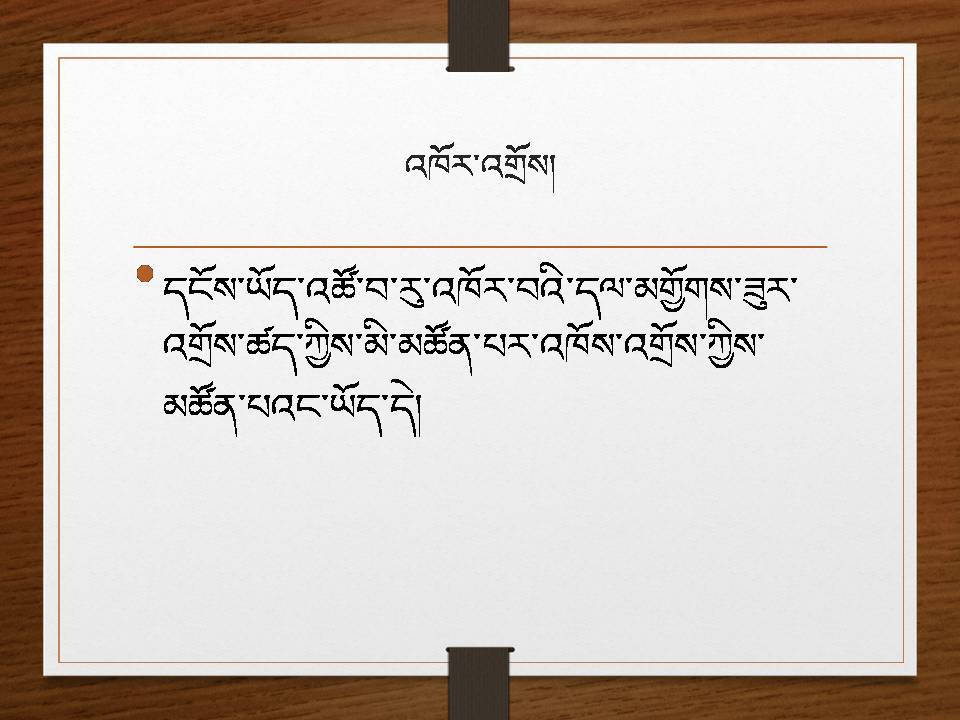 འཁོར་འགྲོས།
དངོས་ཡོད་འཚོ་བ་རུ་འཁོར་བའི་དལ་མགྱོགས་ཟུར་
འགྲོས་ཚད་ཀྱིས་མི་མཚོན་པར་འཁོས་འགྲོས་ཀྱིས་
མཚོན་པའང་ཡོད་དེ།